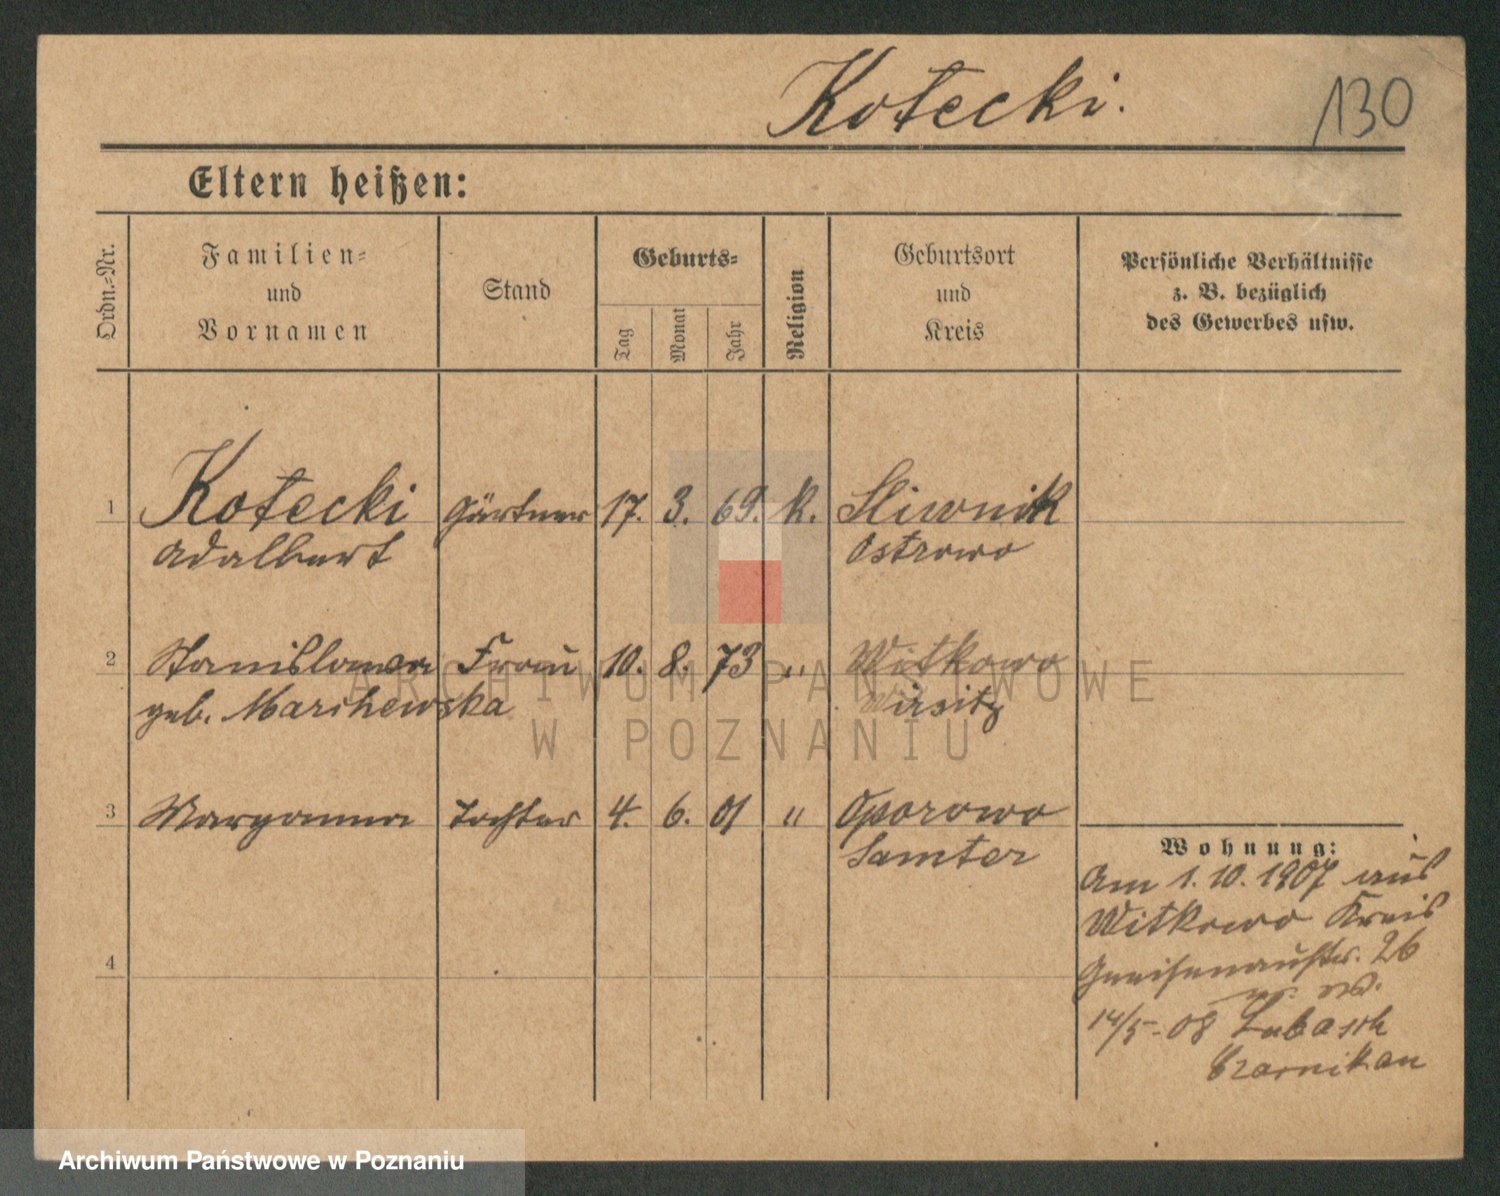 Kotecki.
130
Eltern heißen:
Ordn.-Nr.
Familien-
und
Vornamen
Stand
Geburts-
Tag
Monat
Jahr
Religion
Geburtsort
und
Kreis
Persönliche Verhältnisse
z. B. bezüglich
des Gewerbes usw.
1 Kotecki Gärtner 17. 3. 69. K. Sliwnik
Adalbert Ostrowo
2 Stanislawa Frau 10. 8. 73 " Witkowo
geb. Marchewska Wirsitz
3 Maryanna Tochter 4. 6. 01 " Oporowo
Samter
Wohnung:
Am 1.10.1907 aus
Witkowo Kreis
Gneisenaustr. 26
14/5-08 Lubasch
Czarnikau
4
ARCHIWUM PAŃSTWOWE
W POZNANIU
Archiwum Państwowe w Poznaniu